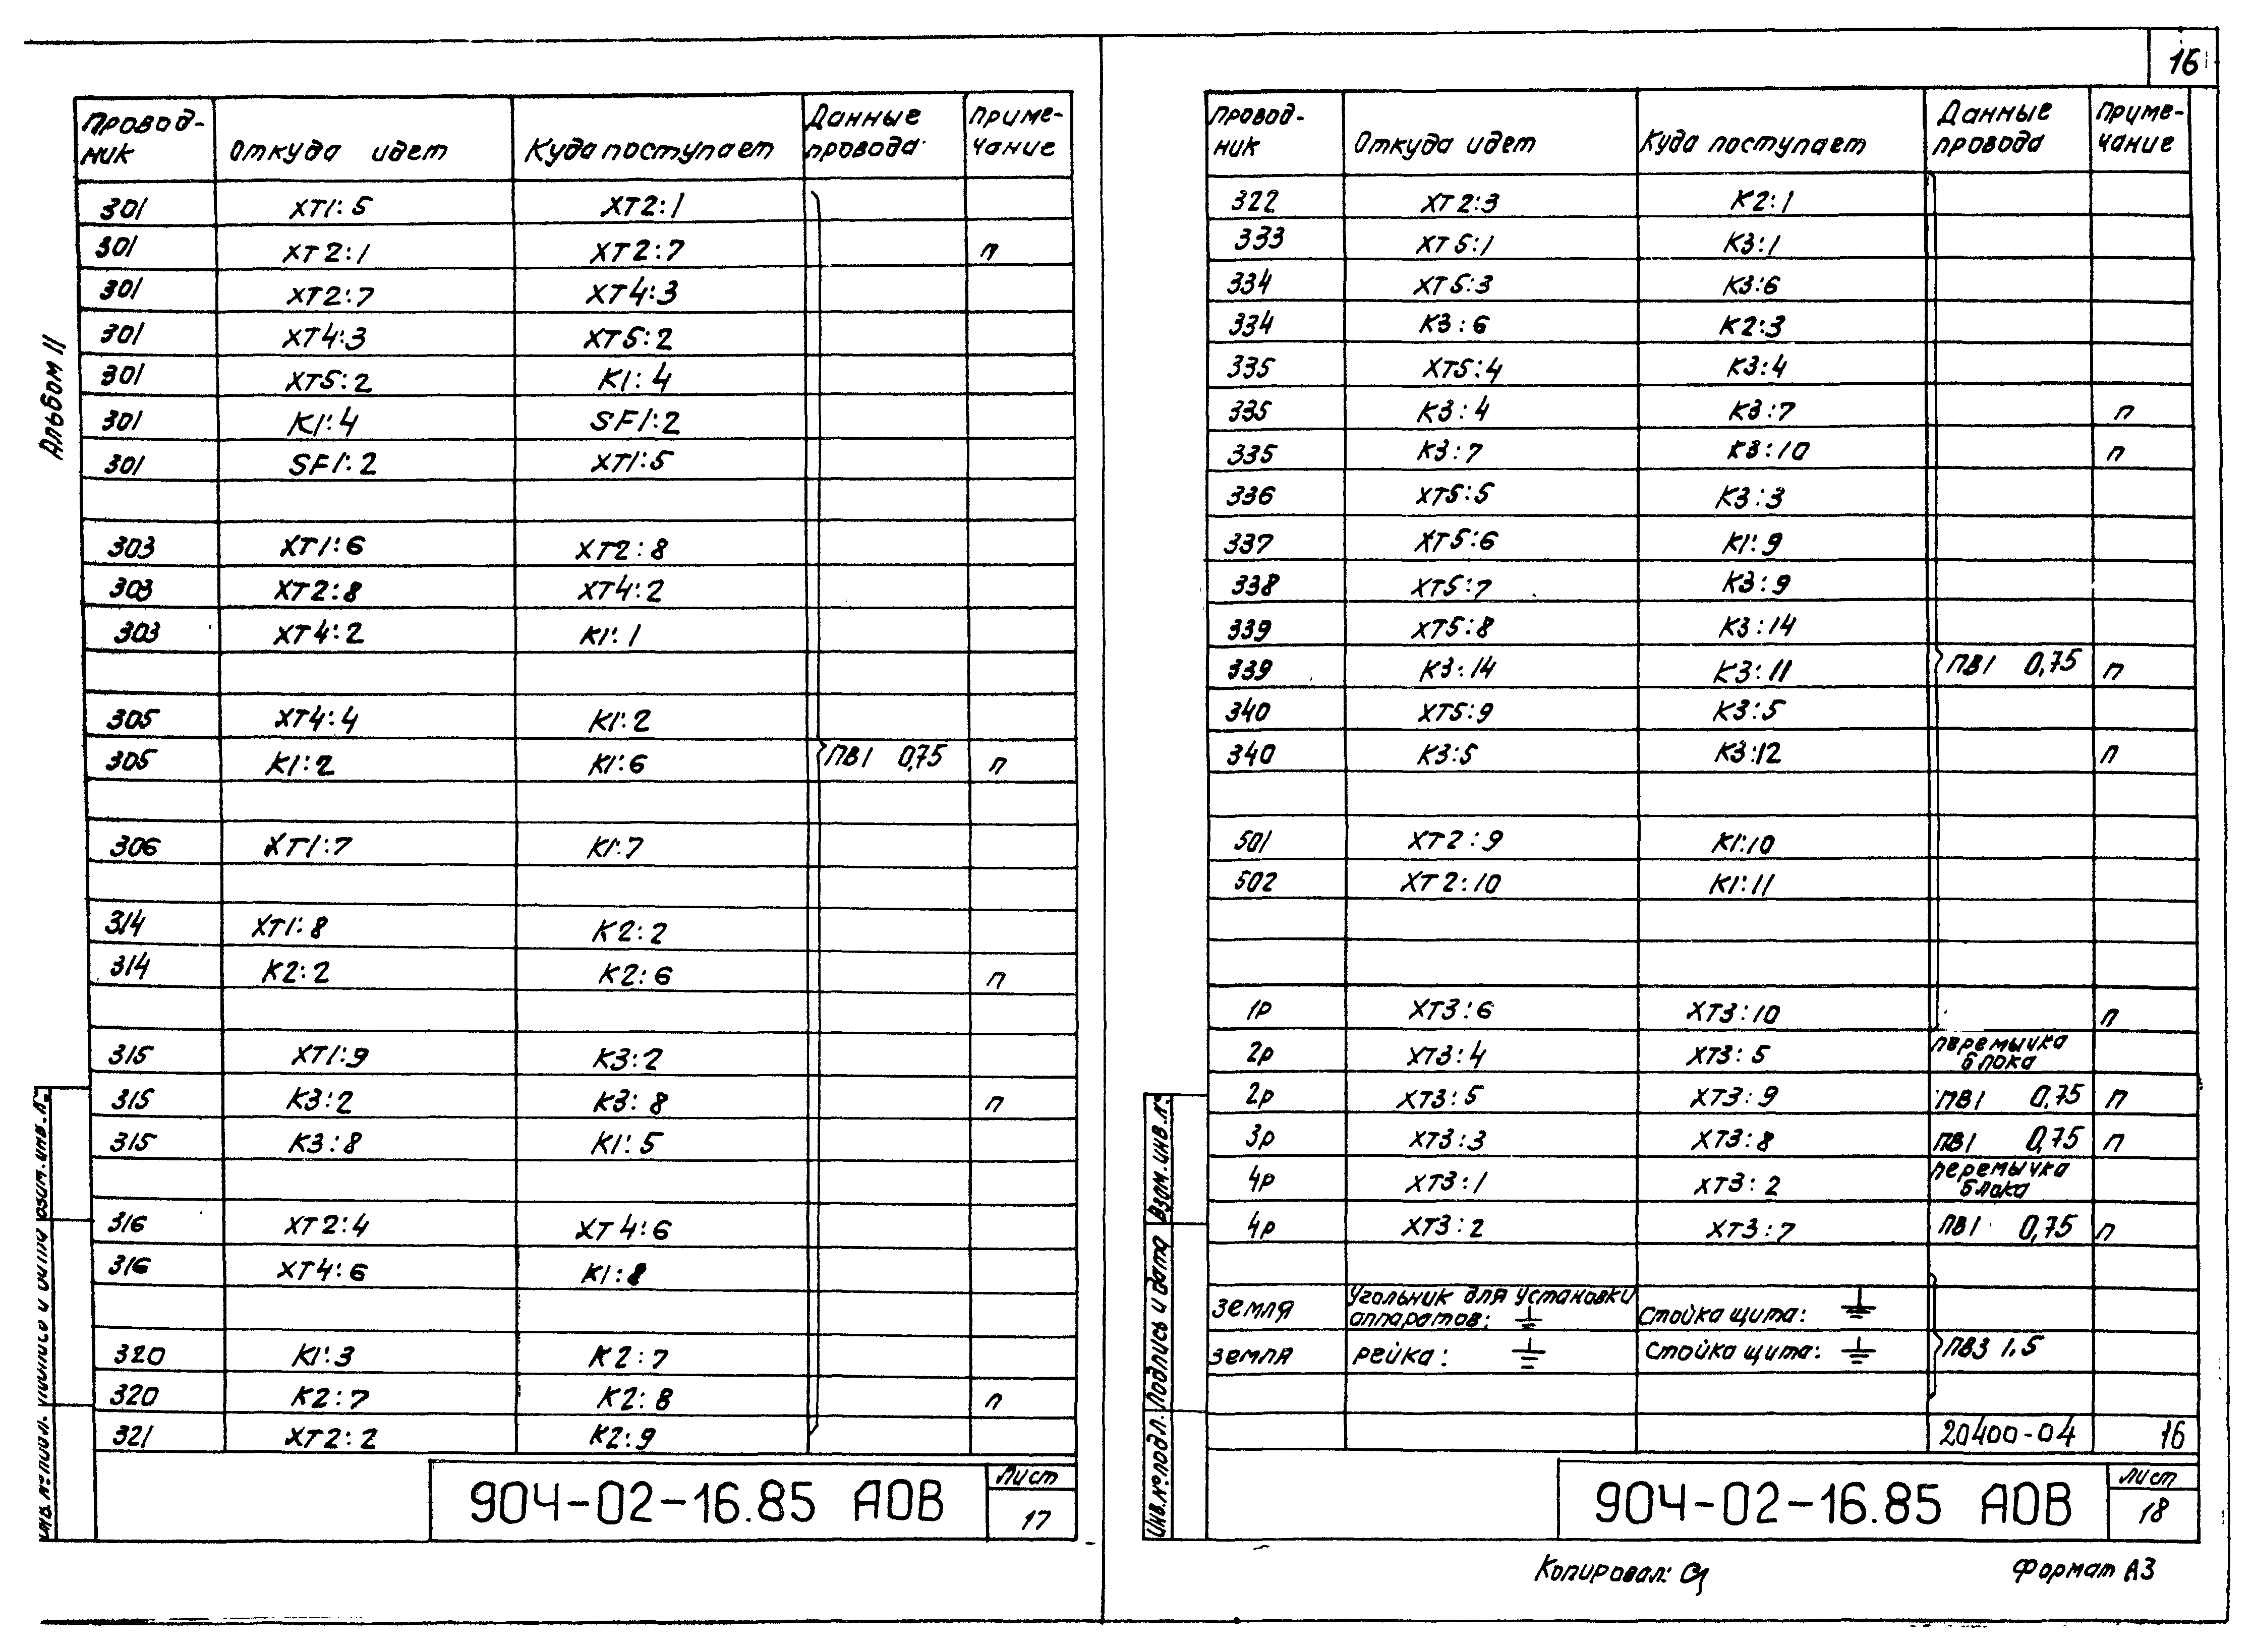 16
Альбом II
Провод-ник Откуда идет Куда поступает Данные провода Приме-чание
301 XT1:5 XT2:1
301 XT2:1 XT2:7 п
301 XT2:7 XT4:3
301 XT4:3 XT5:2
301 XT5:2 K1:4
301 K1:4 SF1:2
301 SF1:2 XT1:5
303 XT1:6 XT2:8
303 XT2:8 XT4:2
303 XT4:2 K1:1
305 XT4:4 K1:2
305 K1:2 K1:6 ПВ1 0,75 п
306 XT1:7 K1:7
314 XT1:8 K2:2
314 K2:2 K2:6 п
315 XT1:9 K3:2
315 K3:2 K3:8 п
315 K3:8 K1:5
316 XT2:4 XT4:6
316 XT4:6 K1:8
320 K1:3 K2:7
320 K2:7 K2:8 п
321 XT2:2 K2:9
904-02-16.85 АОВ
Лист
17
Провод-ник Откуда идет Куда поступает Данные провода Приме-чание
322 XT2:3 K2:1
333 XT5:1 K3:1
334 XT5:3 K3:6
334 K3:6 K2:3
335 XT5:4 K3:4
335 K3:4 K3:7 п
335 K3:7 K3:10 п
336 XT5:5 K3:3
337 XT5:6 K1:9
338 XT5:7 K3:9
339 XT5:8 K3:14
339 K3:14 K3:11 ПВ1 0,75 п
340 XT5:9 K3:5
340 K3:5 K3:12 п
501 XT2:9 K1:10
502 XT2:10 K1:11
1р XT3:6 XT3:10 п
2р XT3:4 XT3:5 перемычка блока
2р XT3:5 XT3:9 ПВ1 0,75 п
3р XT3:3 XT3:8 ПВ1 0,75 п
4р XT3:1 XT3:2 перемычка блока
4р XT3:2 XT3:7 ПВ1 0,75 п
земля Угольник для установки аппаратов: Стойка щита:
земля рейка: Стойка щита: ПВ3 1,5
20400-04 16
904-02-16.85 АОВ
Лист
18
Инв.№подл. Подпись и дата Взам.инв.№
Копировал:
Формат А3